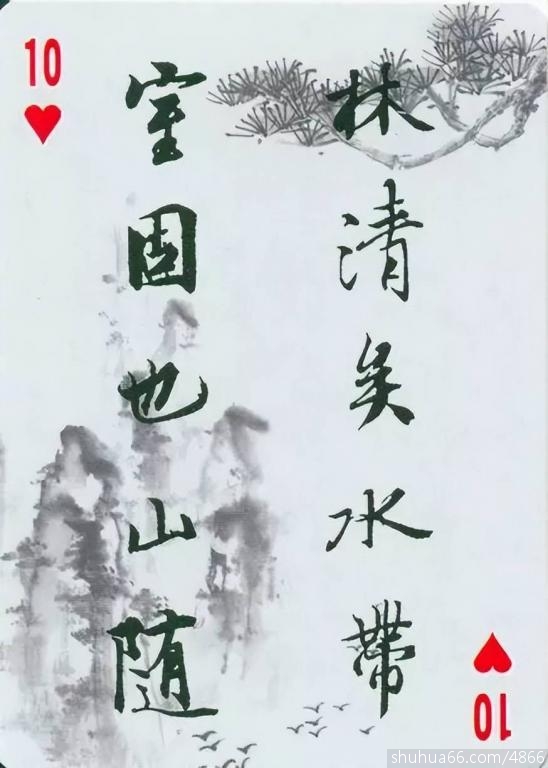 10
林清矣水帶
室固也山随
10
shuhua66.com/4866